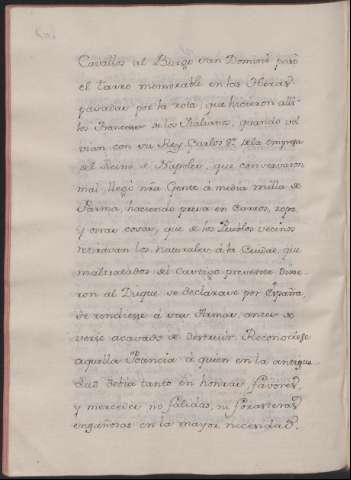 Cavallos al Burgo San Domini paso
el tarro memorable en las Heras
pasadas por la rota, que hicieron alli
los Franceses de los Italianos, quando vol
vian con su Rey Carlos 8.º de la empresa
del Reino de Napoles, que conservaron
mal. llegó nrã Gente á media milla de
Parma, haciendo presa en Carros, ropa,
y otras cosas, que de los Pueblos vecinos
retiravan los naturales á la Ciudad, que
maltratados del Castigo presente dixe-
ron al Duque se declarase por España,
se rendiese á sus Armas, antes de
verse acavado de destruir. Reconociese
aquella Potencia á quien en la antigue
dad debia tanto en honras, favores,
y mercedes no fallidas, ni forasteras
engañosas en la mayor necesidad.